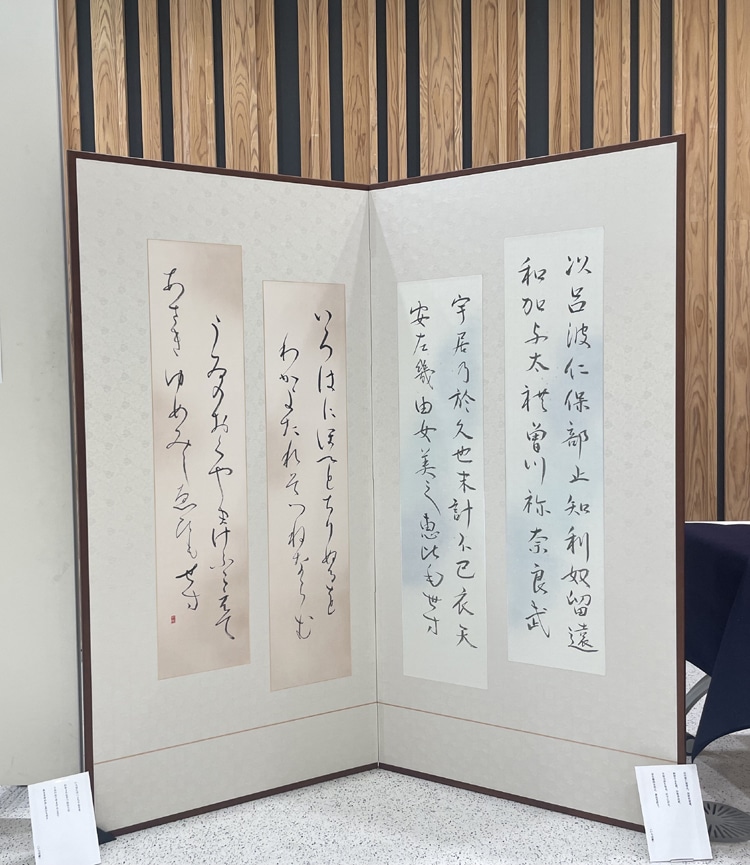 以呂波仁保部止知利奴留遠
和加与太礼曽川祢奈良武
宇居乃於久也末計不己衣天
安左幾由女美之恵比毛世寸
いろはにほへとちりぬるを
わかよたれそつねならむ
うゐのおくやまけふこえて
あさきゆめみしゑひもせす